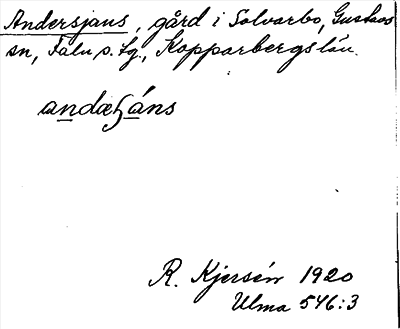 Andersjans, gård i Solvarbo, Gustavs
sn, Falu s. lg., Kopparbergs län.
andæꞕáns
R. Kjersén 1920
Ulma 546:3